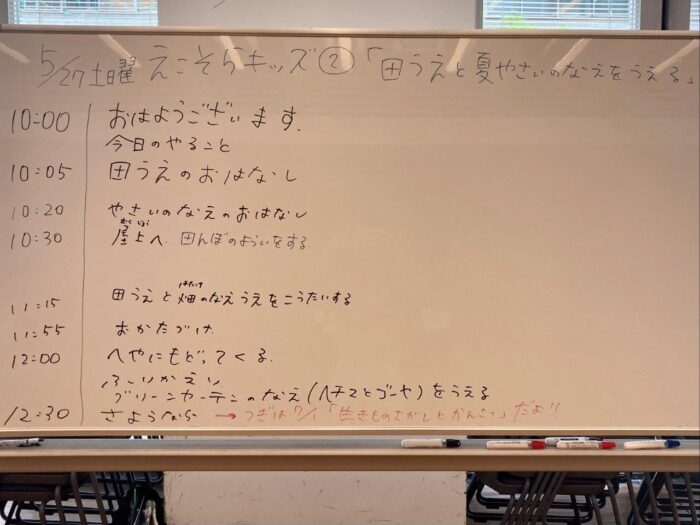 5/27土曜 えこそらキッズ②「田うえと夏やさいのなえをうえる」
10:00 おはようございます.
今日のやること
10:05 田うえのおはなし
10:20 やさいのなえのおはなし
おくじょう
10:30 屋上へ. 田んぼのよういをする.
はたけ
11:15 田うえと畑のなえうえをこうたいする
11:55 おかたづけ.
12:00 へやにもどってくる.
ふりかえり
グリーンカーテンのなえ(ヘチマとゴーヤ)をうえる
12:30 さようなら → つぎは7/1「生きものさがしとかんさつ」だよ!!